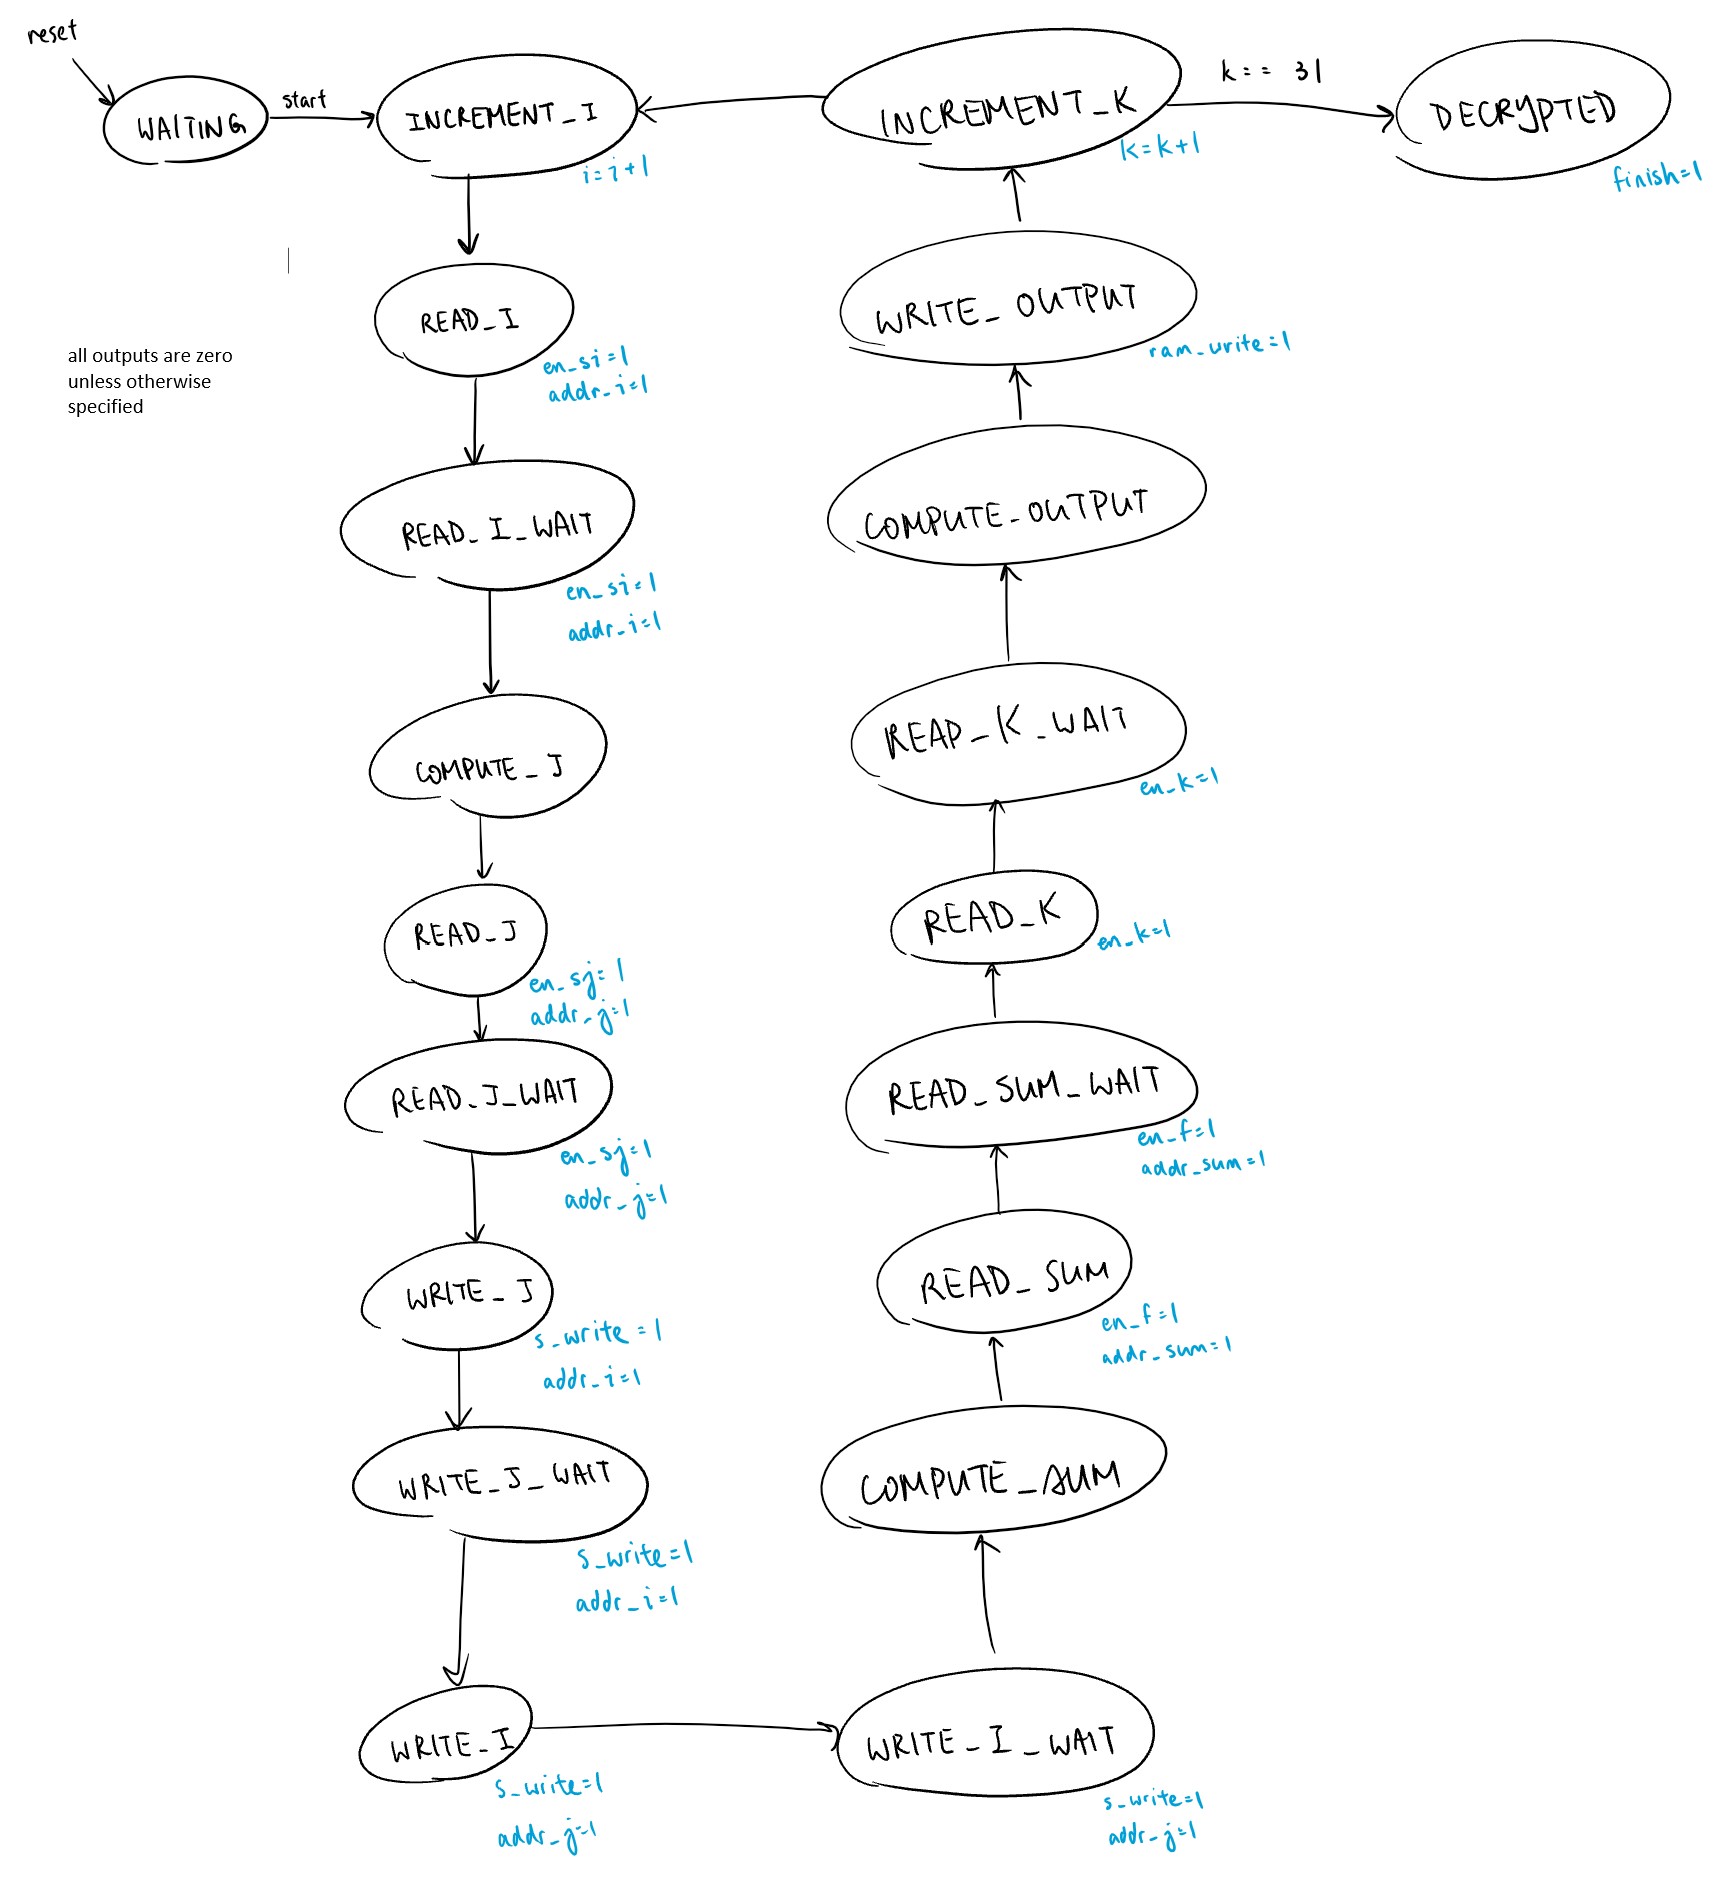 reset
WAITING
start
INCREMENT_I
i=i+1
INCREMENT_K
k=k+1
k== 31
DECRYPTED
finish=1
all outputs are zero
unless otherwise
specified
READ_I
en_si=1
addr_i=1
READ_I_WAIT
en_si=1
addr_i=1
COMPUTE_J
READ_J
en_sj=1
addr_j=1
READ_J_WAIT
en_sj=1
addr_j=1
WRITE_J
s_write=1
addr_i=1
WRITE_J_WAIT
s_write=1
addr_i=1
WRITE_I
s_write=1
addr_j=1
WRITE_I_WAIT
s_write=1
addr_j=1
COMPUTE_SUM
READ_SUM
en_f=1
addr_sum=1
READ_SUM_WAIT
en_f=1
addr_sum=1
READ_K
en_k=1
READ_K_WAIT
en_k=1
COMPUTE_OUTPUT
WRITE_OUTPUT
ram_write=1